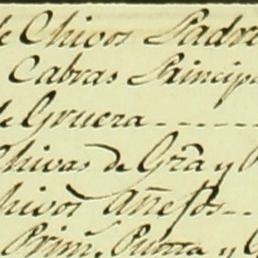 de Chicos Padre
Cabras Princip
de Gruera
Chivas de Gra y
Chivos Añejos
Prim. Punta y